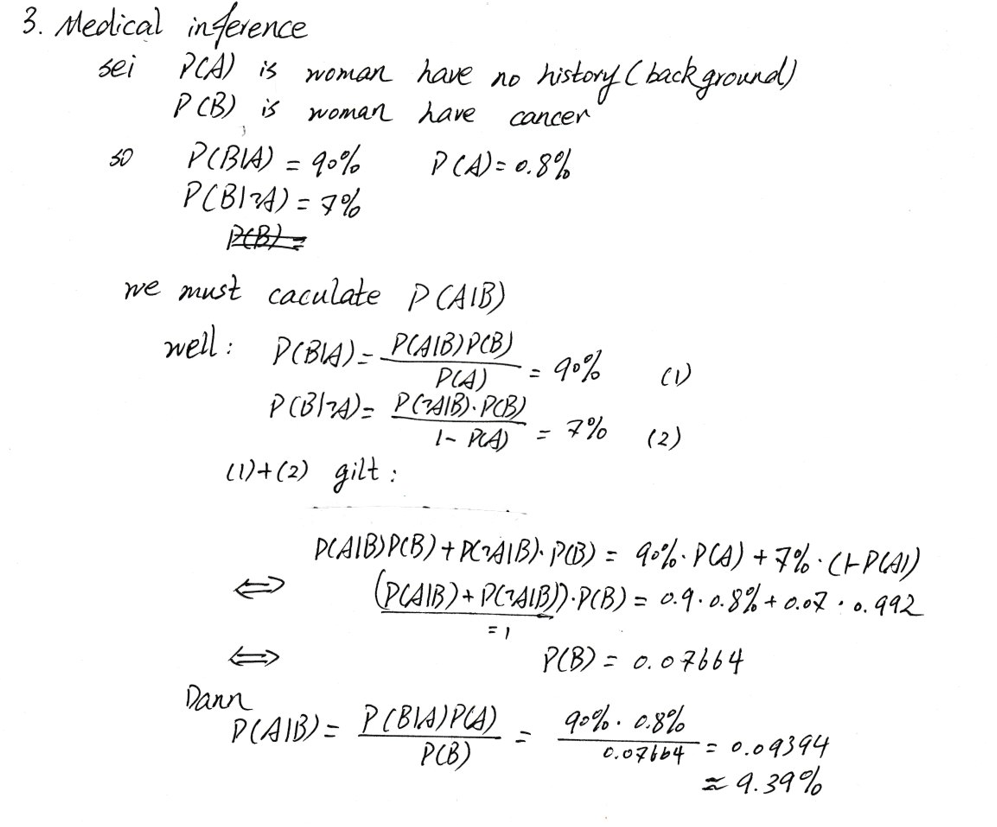 3. Medical inference
sei P(A) is woman have no history (background)
P(B) is woman have cancer
so P(B|A) = 90% P(A) = 0.8%
P(B|¬A) = 7%
P(B) =
we must caculate P(A|B)
well: P(B|A) = P(A|B)P(B) / P(A) = 90% (1)
P(B|¬A) = P(¬A|B)·P(B) / 1 - P(A) = 7% (2)
(1)+(2) gilt:
P(A|B)P(B) + P(¬A|B)·P(B) = 90%·P(A) + 7%·(1-P(A))
⟺ (P(A|B) + P(¬A|B))·P(B) = 0.9·0.8% + 0.07·0.992
= 1
⟺ P(B) = 0.07664
Dann
P(A|B) = P(B|A)P(A) / P(B) = 90%·0.8% / 0.07664 = 0.09394
≈ 9.39%